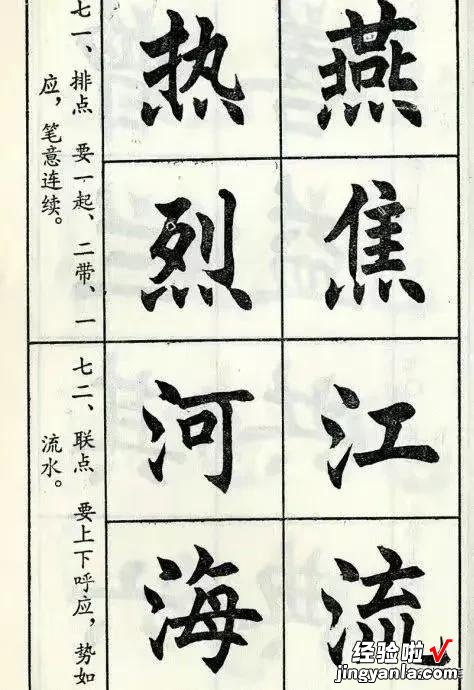 燕
热
焦
烈
七一、排点 要一起、二带、一
应，笔意连续。
江
河
流
海
七二、联点 要上下呼应，势如
流水。
经验啦√
jingyanla.com